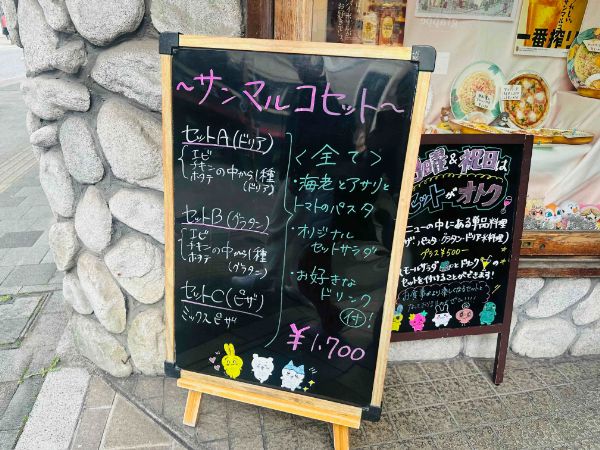 ～サンマルコセット～
セットA(ドリア)
エビ
チキン の中から1種
ホタテ (ドリア)
セットB(グラタン)
エビ
チキン の中から1種
ホタテ (グラタン)
セットC(ピザ)
ミックスピザ
<全て>
・海老とアサリと
トマトのパスタ
・オリジナル
セットサラダ
・お好きな
ドリンク
付!
¥1,700
一番搾り
曜&祝日は
セットがオトク
ニューの中にある単品料理
プラス¥500ー
セットを付けることができます!